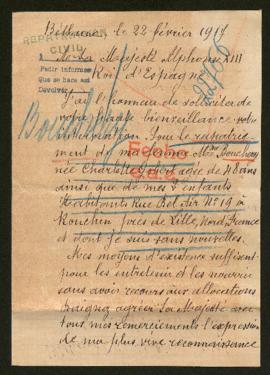 Béthune le 22 février 1917
REPRESENTADO
CIVIL
A Sa Majesté Alphonse XIII
Roi d'Espagne
Pedir informes
Que se hace así
Devolver
J'ai l'honneur de solliciter de
votre haute bienveillance votre
intervention pour le rapatrie-
ment de ma femme Mme Bouchez
née Charlotte âgée de 48 ans
ainsi que de mes 4 enfants
habitants Rue Bel-Air No 19 à
Ronchin près de Lille, Nord, France
et dont je suis sans nouvelles.
Mes moyens d'existence suffisent
pour les entretenir et les nourrir
sans avoir recours aux allocations
Daignez agréer Sa Majesté avec
tous mes remerciements l'expression
de ma plus vive reconnaissance